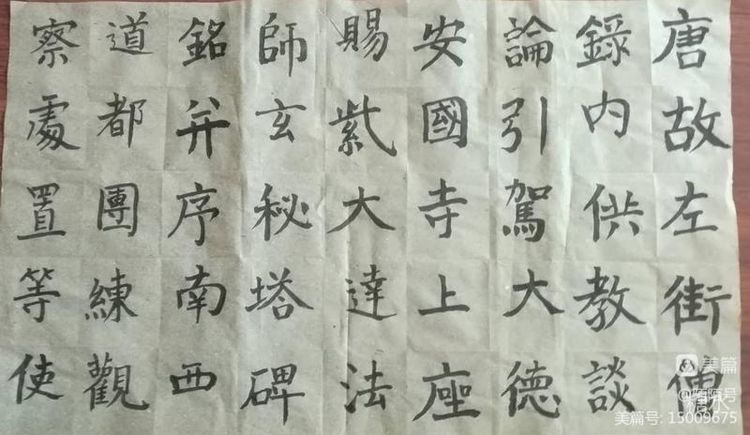 唐故左街僧
錄内供教談
論引駕大德
安國寺上座
賜紫大達法
師玄秘塔碑
銘并序南西
道都團練觀
察處置等使
美篇
美篇号: 15009675